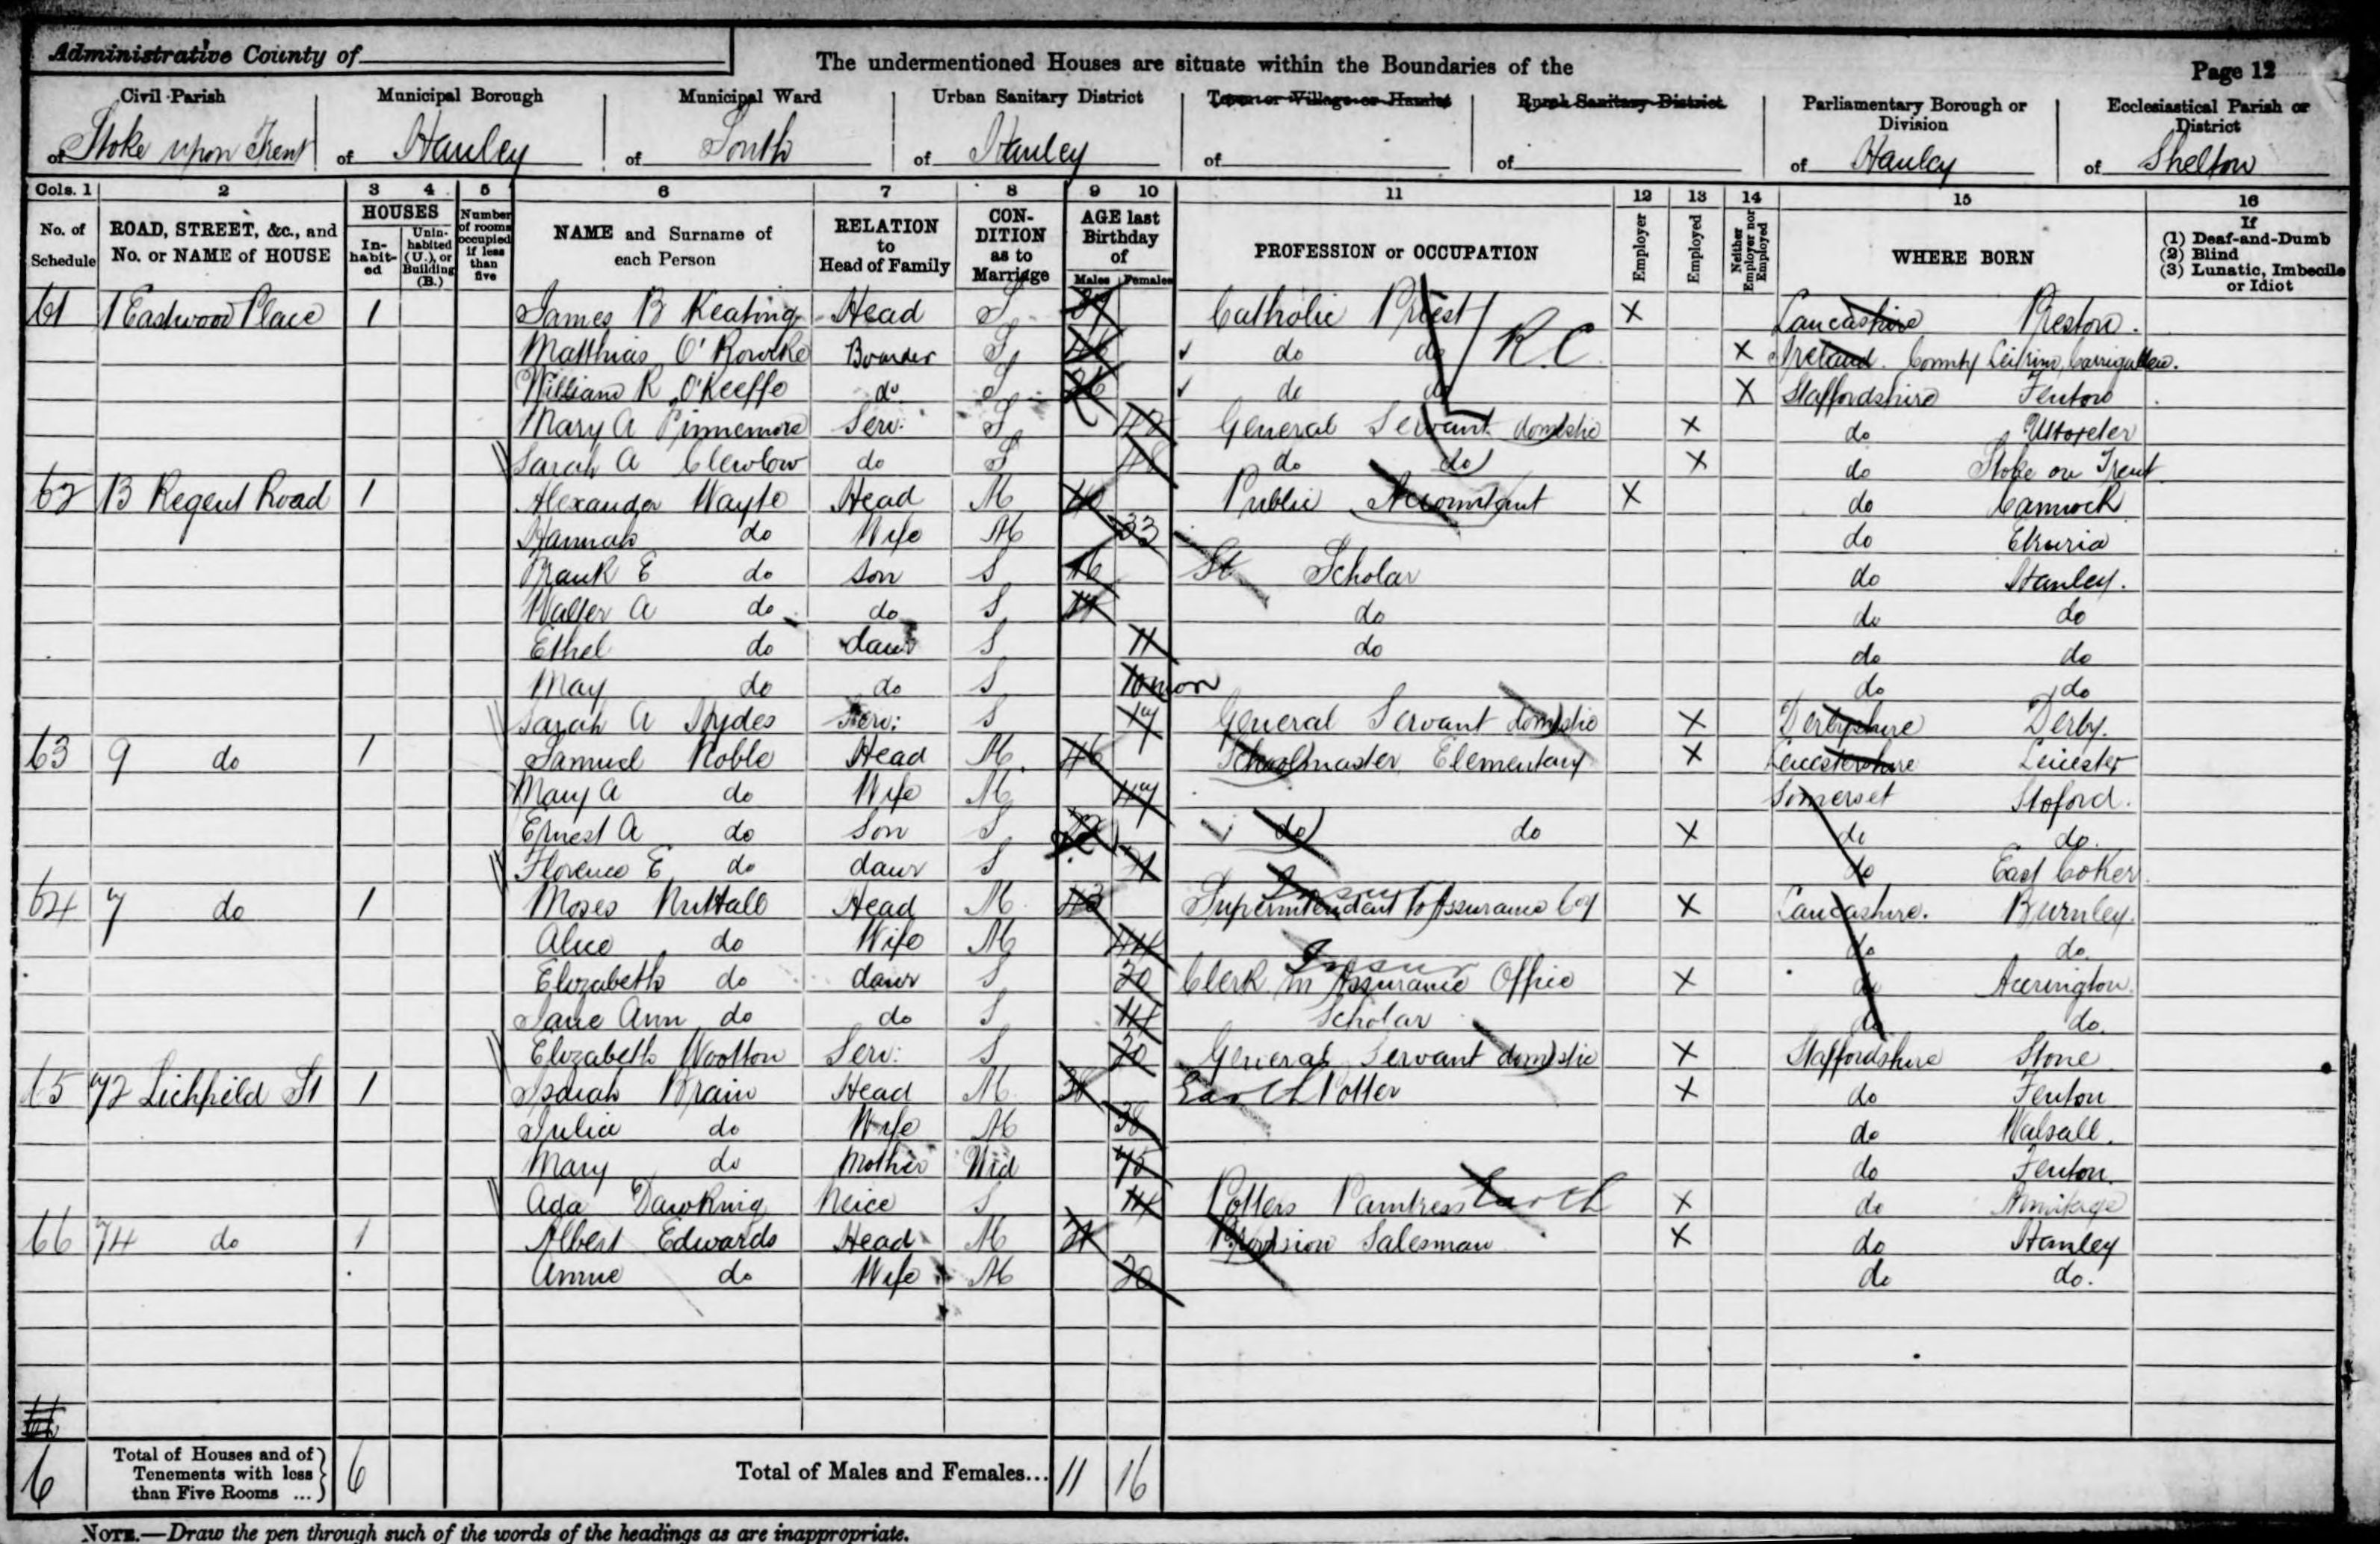 Administrative County of
The undermentioned Houses are situate within the Boundaries of the
Page 12
Civil Parish of Stoke upon Trent
Municipal Borough of Hanley
Municipal Ward of South
Urban Sanitary District of Hanley
Town or Village or Hamlet of
Rural Sanitary District of
Parliamentary Borough or Division of Hanley
Ecclesiastical Parish or District of Shelton
Cols. 1 2 3 4 5 6 7 8 9 10 11 12 13 14 15 16
No. of Schedule
ROAD, STREET, &c., and No. or NAME of HOUSE
HOUSES
In-habit-ed
Unin-habited (U.), or Building (B.)
Number of rooms occupied if less than five
NAME and Surname of each Person
RELATION to Head of Family
CON-DITION as to Marriage
AGE last Birthday of
Males Females
PROFESSION or OCCUPATION
Employer
Employed
Neither Employer nor Employed
WHERE BORN
If
(1) Deaf-and-Dumb
(2) Blind
(3) Lunatic, Imbecile or Idiot
61 1 Eastwood Place 1 James B Keating Head S Catholic Priest X Lancashire Preston.
Matthias O'Rourke Boarder S do do R.C X Ireland. County Leitrim, Carrigallen.
William R O'Keeffe do S 26 do do X Staffordshire Fenton
Mary A Pinnemore Serv: S General Servant domestic X do Uttoxeter
Sarah A Clewlow do S 48 do do X do Stoke on Trent
62 13 Regent Road 1 Alexander Wayte Head M 40 Public Accountant X do Cannock
Hannah do Wife M 33 do Etruria
Frank E do son S 16 St Scholar do Hanley.
Walter A do do S 14 do do do
Ethel do daur S 11 do do do
May do do S 10 mon do do
Sarah A Hydes Serv: S 17 General Servant domestic X Derbyshire Derby.
63 9 do 1 Samuel Noble Head M 46 Schoolmaster Elementary X Leicestershire Leicester
Mary A do Wife M 47 Somerset Stoford.
Ernest A do Son S 22 do do X do do.
Florence E do daur S 21 do East Coker
64 7 do 1 Moses Nuttall Head M 43 Insur Superintendant to Assurance Coy X Lancashire. Burnley.
Alice do Wife M 44 do do.
Elizabeth do daur S 20 Clerk in Assurance Office Insur X do Accrington.
Jane Ann do do S 14 Scholar do do.
Elizabeth Wootton Serv: S 20 General Servant domestic X Staffordshire Stone
65 72 Lichfield St 1 Isaiah Brain Head M 38 Earth Potter X do Fenton
Julia do Wife M 38 do Walsall.
Mary do Mother Wid 75 do Fenton.
Ada Dawking Neice S 14 Potters Paintress Earth X do Armitage
66 74 do 1 Albert Edwards Head M 21 Provision Salesman X do Hanley
Annie do Wife M 20 do do.
6 Total of Houses and of Tenements with less than Five Rooms ... 6 Total of Males and Females... 11 16
NOTE.—Draw the pen through such of the words of the headings as are inappropriate.